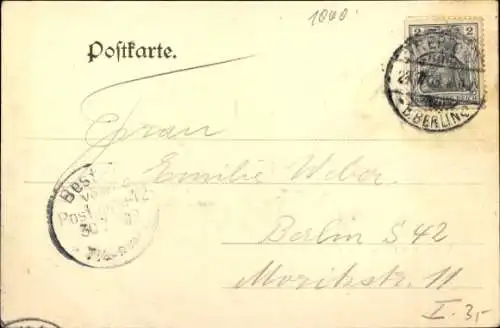 1000
Postkarte.
2 2
FRIEDE
B. BERLIN
Frau
Emilie Weber
Best
Post
30
Berlin S 42
Moritzstr. 11
I. 3,-